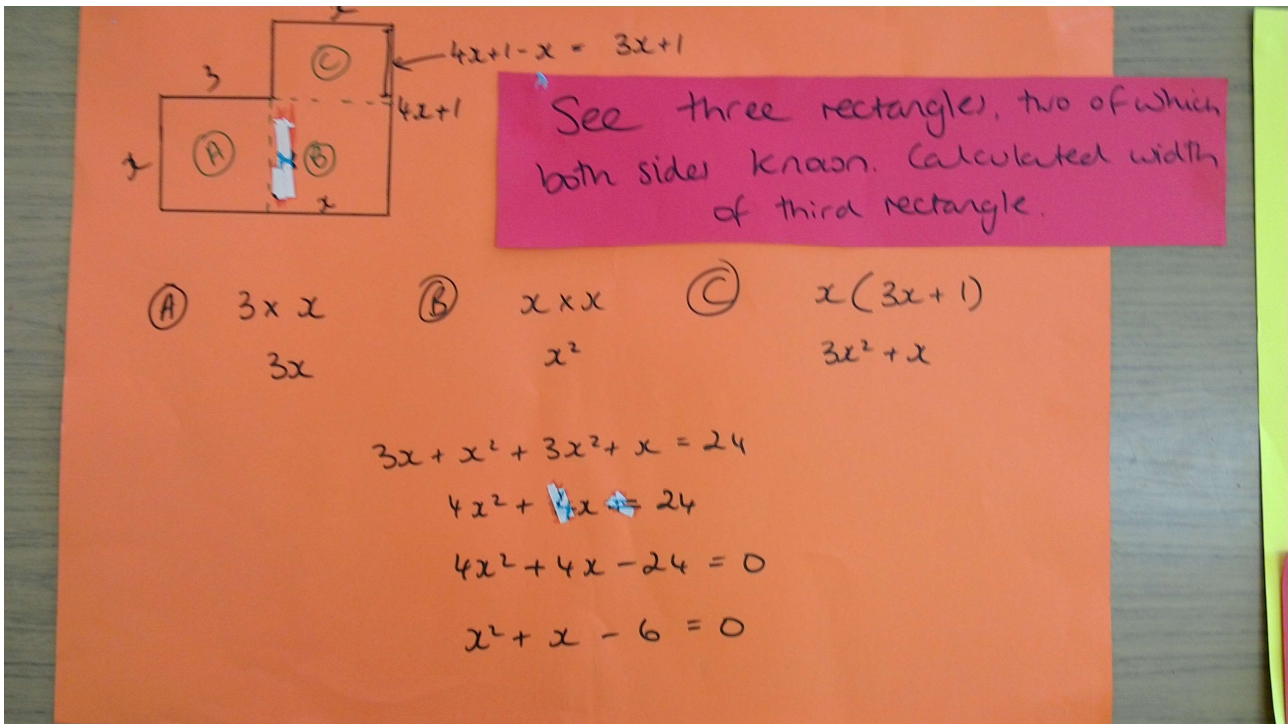 x
4x+1-x = 3x+1
C
3
4x+1
x
A
B
x
See three rectangles, two of which
both sides known. Calculated width
of third rectangle.
A 3 × x B x × x C x(3x+1)
3x x² 3x² + x
3x + x² + 3x² + x = 24
4x² + 4x = 24
4x² + 4x - 24 = 0
x² + x - 6 = 0